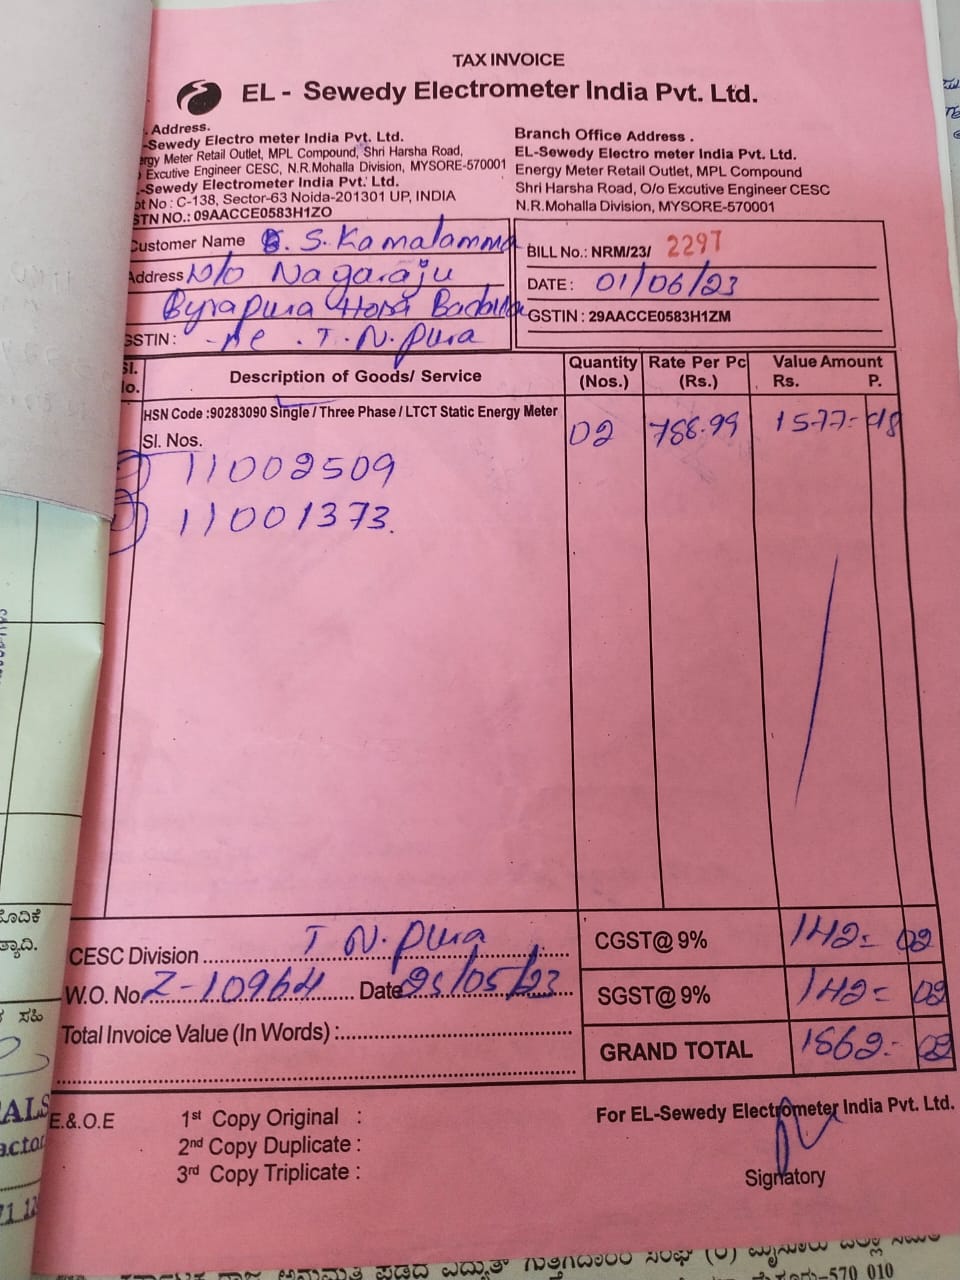 TAX INVOICE
EL - Sewedy Electrometer India Pvt. Ltd.
. Address.
-Sewedy Electro meter India Pvt. Ltd.
ergy Meter Retail Outlet, MPL Compound, Shri Harsha Road,
Excutive Engineer CESC, N.R.Mohalla Division, MYSORE-570001
-Sewedy Electrometer India Pvt. Ltd.
ot No : C-138, Sector-63 Noida-201301 UP, INDIA
STN NO.: 09AACCE0583H1ZO
Branch Office Address .
EL-Sewedy Electro meter India Pvt. Ltd.
Energy Meter Retail Outlet, MPL Compound
Shri Harsha Road, O/o Excutive Engineer CESC
N.R.Mohalla Division, MYSORE-570001
Customer Name S. Kamalamma
Address Nagaraju
Byrapura
GSTIN : T. N. Pura
BILL No.: NRM/23/ 2297
DATE : 01/06/23
GSTIN : 29AACCE0583H1ZM
Sl. No. Description of Goods/ Service Quantity (Nos.) Rate Per Pc (Rs.) Value Amount Rs. P.
HSN Code :90283090 Single / Three Phase / LTCT Static Energy Meter
Sl. Nos. 02 788.99 1577-98
11002509
11001373.
CESC Division T N. Pura
W.O. No Z-10964 Date 25/05/23
Total Invoice Value (In Words) :
CGST@ 9% 142= 02
SGST@ 9% 142= 02
GRAND TOTAL 1862.- 02
E.&.O.E
1st Copy Original :
2nd Copy Duplicate :
3rd Copy Triplicate :
For EL-Sewedy Electrometer India Pvt. Ltd.
Signatory